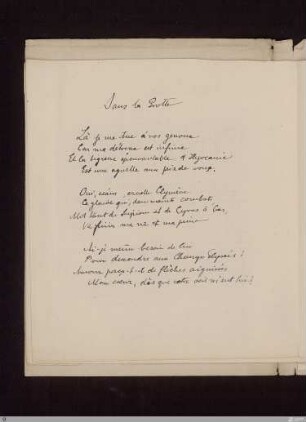 Dans la Grotte
Là je me tue à vos genoux
Car ma détresse est infinie
Et la tigresse épouvantable d'Hyrcanie
Est une agnelle au prix de vous.
Oui, céans, cruelle Clymène
Ce glaive qui, dans maints combats
Mit tant de Scipions et de Cyrus à bas,
Va finir ma vie et ma peine
Ai-je même besoin de lui
Pour descendre aux Champs Elysées ?
Amour perça-t-il de flèches aiguisées
Mon cœur, dès que votre œil m'eut lui ?